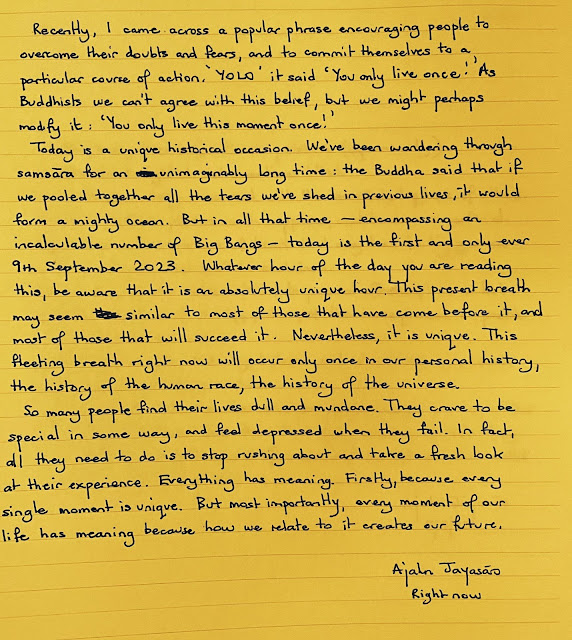 Recently, I came across a popular phrase encouraging people to
overcome their doubts and fears, and to commit themselves to a
particular course of action. 'YOLO' it said 'You only live once!' As
Buddhists we can't agree with this belief, but we might perhaps
modfy it : 'You only live this moment once!'
Today is a unique historical occasion. We've been wandering through
samsāra for an unimaginably long time : the Buddha said that if
we pooled together all the tears we've shed in previous lives, it would
form a mighty ocean. But in all that time – encompassing an
incalculable number of Big Bangs – today is the first and only ever
9th September 2023. Whatever hour of the day you are reading
this, be aware that it is an absolutely unique hour. This present breath
may seem similar to most of those that have come before it, and
most of those that will succeed it. Nevertheless, it is unique. This
fleeting breath right now will occur only once in our personal history,
the history of the human race, the history of the universe.
So many people find their lives dull and mundane. They crave to be
special in some way, and feel depressed when they fail. In fact,
all they need to do is to stop rushing about and take a fresh look
at their experience. Everything has meaning. Firstly, because every
single moment is unique. But most importantly, every moment of our
life has meaning because how we relate to it creates our future.
Ajahn Jayasāro
Right now